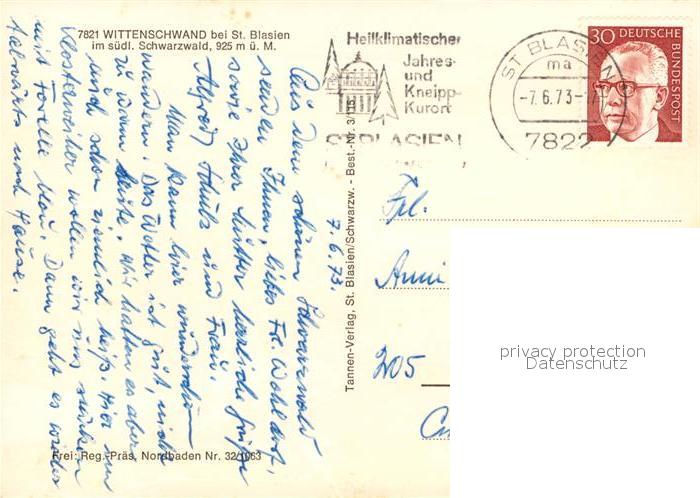 7821 WITTENSCHWAND bei St. Blasien
im südl. Schwarzwald, 925 m ü. M.
Heilklimatischer
Jahres-
und
Kneipp-
Kurort
ST. BLASIEN
ST BLASIEN
ma
-7.6.73-
7822
30 DEUTSCHE
BUNDESPOST
7.6.73.
Aus dem schönen Schwarzwald
senden Ihnen, liebes Frl. Wohldorf,
sowie Ihrer Mutter herzliche Grüße
Alfred Schulz und Frau.
Man kann hier wunderschön
wandern. Das Wetter ist gut, nicht
zu warm heute. Wir hatten es aber
auch schon ziemlich heiß. Hier im
Klosterweiher wollen wir uns stärken
mit Forelle blau. Dann geht es wieder
talwärts nach Hause.
Tannen-Verlag, St. Blasien/Schwarzw. - Best.-Nr. 3/115
Frl.
Anni
205
privacy protection
Datenschutz
Frei: Reg.-Präs. Nordbaden Nr. 32/1063